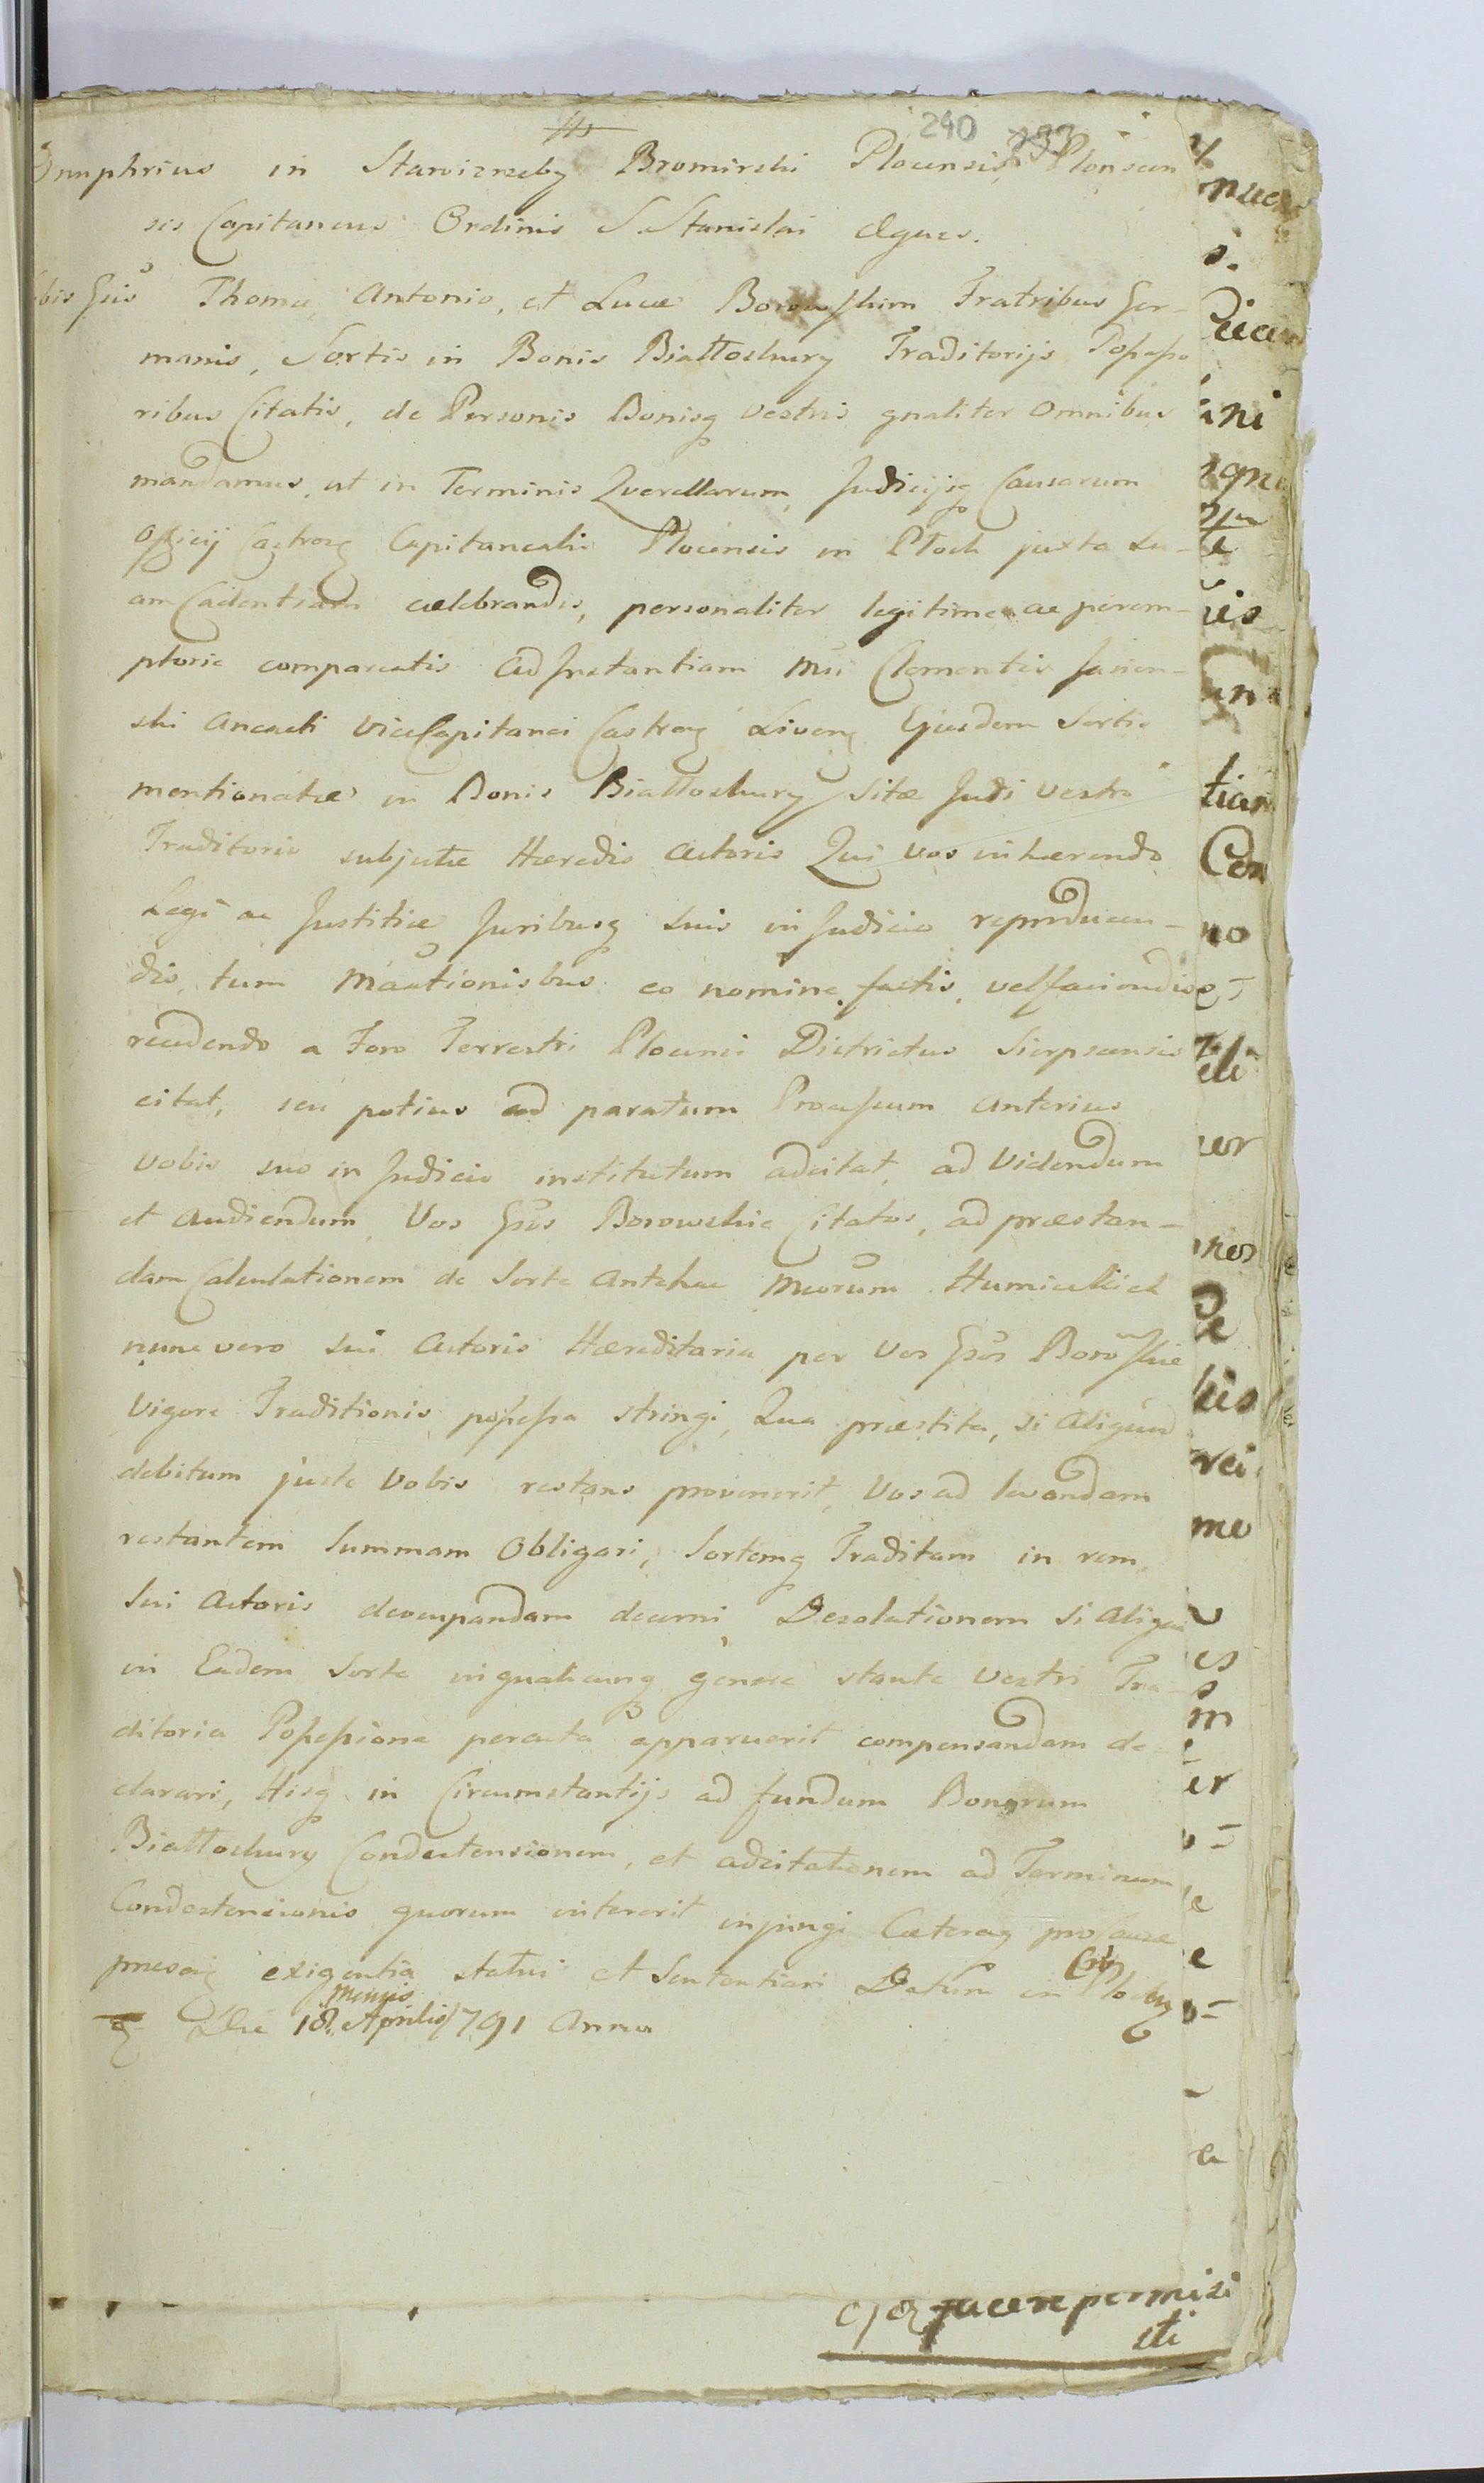 240
Onuphrius in Stawiszneby Bromirski Plocensis, Plonscen
sis Capitaneus Ordinis S. Stanislai Eques.
Vobis Gsis Thomæ, Antonio, et Lucæ Borowskim Fratribus Ger-
manis, Sortis in Bonis Białłoskury Traditorijs Possesso
ribus Citatis, de Personis Bonisq Vestris gnaliter Omnibus
mandamus, ut in Terminis Querellarum, Judicijsq Causarum
Officij Castrens Capitanealis Plocensis in Płock juxta su-
am Cadentiam cælebrandis, personaliter legitime ac perem-
ptorie compareatis Ad Instantiam Mci Clementis Jasien-
ski Ancuti ViceCapitanei Castren Livens Ejusdem Sortis
mentionatæ in Bonis Białłoskury sitæ Juri Vestro
Traditorio subjectæ Hæredis Actoris Qui Vos inhærendo
Legi ac Justitiæ Juribusq suis in Judicio reproducen-
dis, tum Mactionibus eo nomine factis, vel faciendis
recedendo a Foro Terrestri Plocensi Districtus Sierpscensis
citat, seu potius ad paratum Processum anterius
Vobis suo in Judicio institutum adcitat, ad Videndum
et Audiendum, Vos Gsos Borowskie Citatos, ad præstan-
dam Calculationem de Sorte Antehac Mcorum Humickich
nunc vero sui Actoris Hæreditaria per Vos Gsos Borowskie
Vigore Traditionis possessa stringi, Qua præstita, si Aliquod
debitum juste Vobis restans provenerit, Vos ad levandam
restantem Summam Obligari, Sortemq Traditam in rem
Sui Actoris deocupandam decerni, Desolationem si Aliqua
in Eadem Sorte in qualicunq genere stante Vestri Tra-
ditoria Possessione peracta apparuerit compensandam de-
clarari, Hisq in Circumstantijs ad fundum Bonorum
Białłoskury Condectensionem, et adcitationem ad Terminum
Condectensionis quorum intererit injungi Cæteraq pro Causæ
præsen exigentia statui et Sententiari Datum in Castro Plocen
Die 18. Mensis Aprilis 1791 Anno
facere permisi
sti